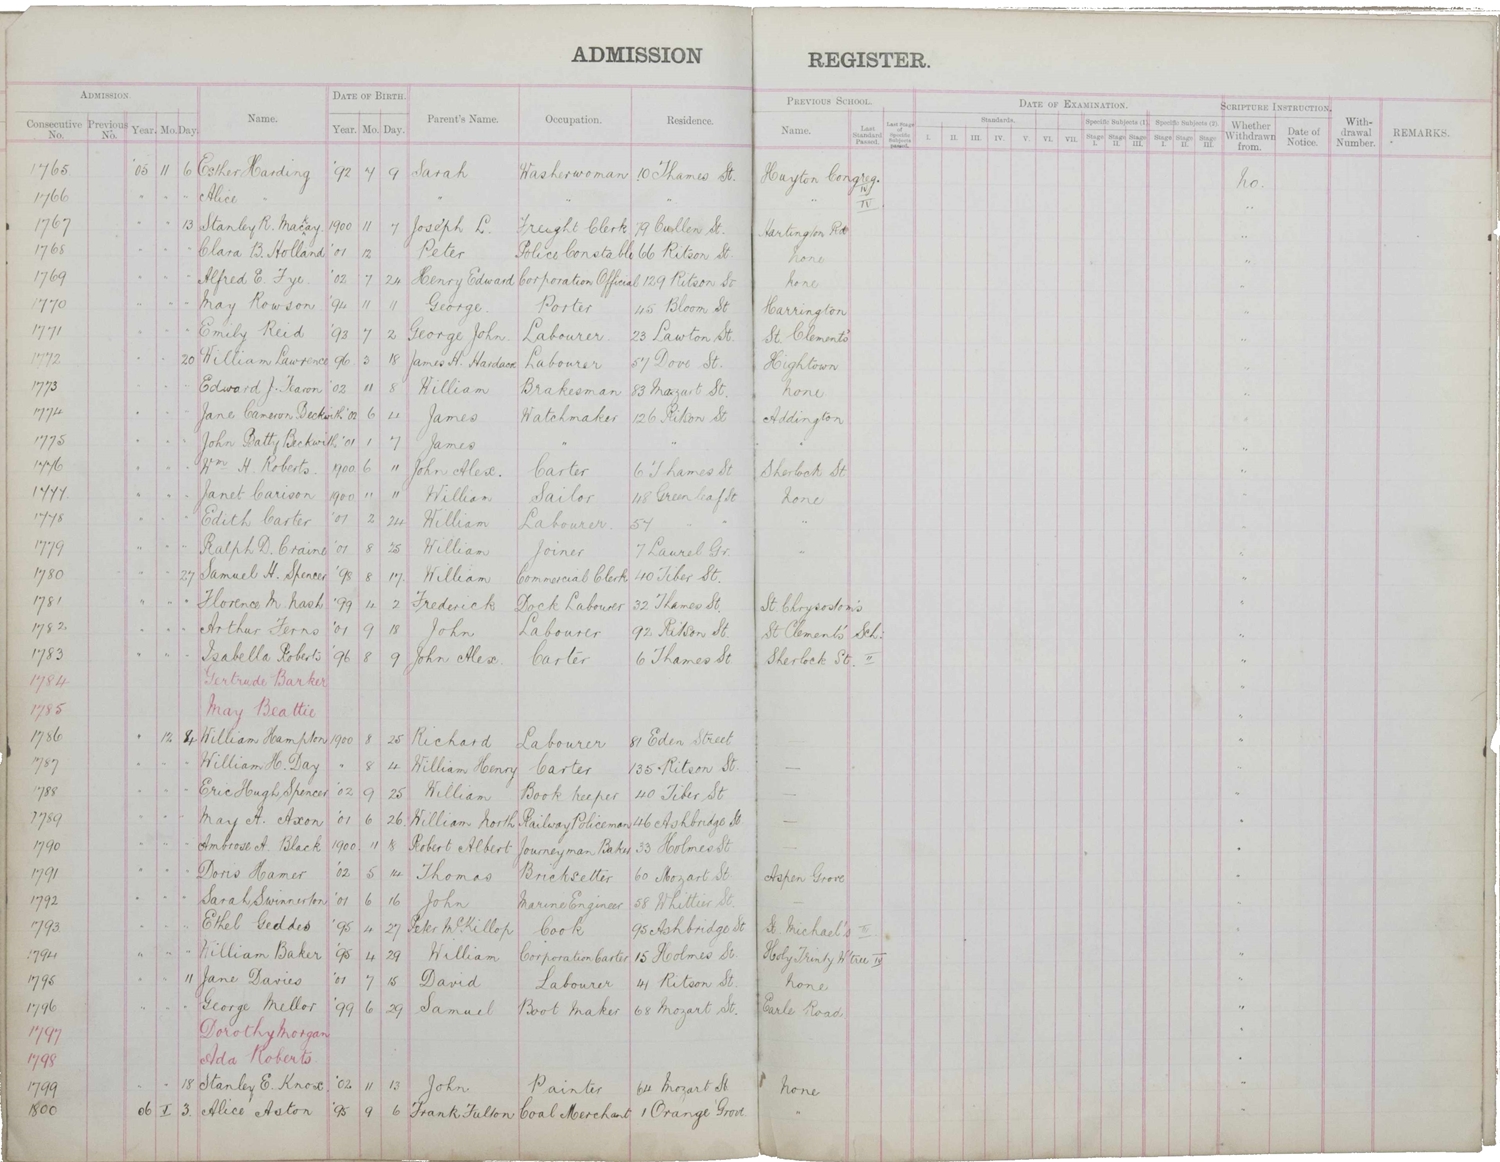 ADMISSION REGISTER.
ADMISSION. DATE OF BIRTH. PREVIOUS SCHOOL. DATE OF EXAMINATION. SCRIPTURE INSTRUCTION.
Consecutive No. Previous No. Year. Mo. Day. Name. Year. Mo. Day. Parent's Name. Occupation. Residence. Name. Last Standard Passed. Last Stage of Specific Subjects passed. Standards. I. II. III. IV. V. VI. VII. Specific Subjects (1). Stage I. Stage II. Stage III. Specific Subjects (2). Stage I. Stage II. Stage III. Whether Withdrawn from. Date of Notice. With-drawal Number. REMARKS.
1765 '05 11 6 Esther Harding '92 7 9 Sarah Washerwoman 10 Thames St. Huyton Congreg. IV no.
1766 " " " Alice " " " " " IV "
1767 " " 13 Stanley R. Macay. 1900 11 7 Joseph L. Freight Clerk 79 Cullen St. Hartington Rd "
1768 " " " Clara B. Holland '01 12 Peter Police Constable 66 Ritson St. none "
1769 " " " Alfred E. Fye. '02 7 24 Henry Edward Corporation Official 129 Ritson St none "
1770 " " " May Rowson '94 11 11 George. Porter 45 Bloom St Harrington "
1771 " " " Emily Reid '93 7 2 George John Labourer. 23 Lawton St. St. Clements' "
1772 " " 20 William Lawrence 96 3 18 James H. Labourer 57 Dove St. Hightown "
1773 " " " Edward J. '02 11 8 William Brakesman 83 Mozart St. none "
1774 " " " Jane Cameron Beckwith '02 6 4 James Watchmaker 126 Ritson St Addington "
1775 " " " John Batty Beckwith '01 1 7 James " " " "
1776 " " " Wm H. Roberts. 1900 6 11 John Alex. Carter 6 Thames St Sherlock St "
1777 " " " Janet Carison 1900 11 11 William Sailor 48 Greenleaf St none "
1778 " " " Edith Carter '01 2 24 William Labourer. 57 " " " "
1779 " " " Ralph D. Craine '01 8 25 William Joiner 7 Laurel Gr. " "
1780 " " 27 Samuel H. Spencer '98 8 17. William Commercial Clerk 40 Tiber St. "
1781 " " " Florence M. Nash '99 4 2 Frederick Dock Labourer 32 Thames St. St. Chrysostom's "
1782 " " " Arthur Ferns '01 9 18 John Labourer 92 Ritson St. St Clements' Sch. "
1783 " " " Isabella Roberts '96 8 9 John Alex. Carter 6 Thames St. Sherlock St. II "
1784 Gertrude Barker "
1785 May Beattie "
1786 " 12 4 William Hampton 1900 8 25 Richard Labourer 81 Eden Street "
1787 " " " William H. Day " 8 4 William Henry Carter 135 Ritson St. — "
1788 " " " Eric Hugh Spencer '02 9 25 William Book keeper 40 Tiber St — "
1789 " " " May A. Axon '01 6 26 William North Railway Policeman 46 Ashbridge St — "
1790 " " " Ambrose A. Black 1900. 11 8 Robert Albert Journeyman Baker 33 Holmes St — "
1791 " " " Doris Hamer '02 5 14 Thomas Bricksetter 60 Mozart St Aspen Grove "
1792 " " " Sarah Swinnerton '01 6 16 John Marine Engineer 58 Whittier St. — "
1793 " " " Ethel Geddes '95 4 27 Peter McKillop Cook 95 Ashbridge St St. Michael's III "
1794 " " " William Baker '95 4 29 William Corporation Carter 15 Holmes St. Holy Trinity W'tree IV "
1795 " " 11 Jane Davies '01 7 15 David Labourer 41 Ritson St. none "
1796 " " " George Mellor '99 6 29 Samuel Boot Maker 68 Mozart St. Earle Road "
1797 Dorothy Morgan "
1798 Ada Roberts. "
1799 " " 18 Stanley E. Knox '02 11 13 John Painter 64 Mozart St none "
1800 06 I 3. Alice Aston '95 9 6 Frank Fulton Coal Merchant 1 Orange Grove " "